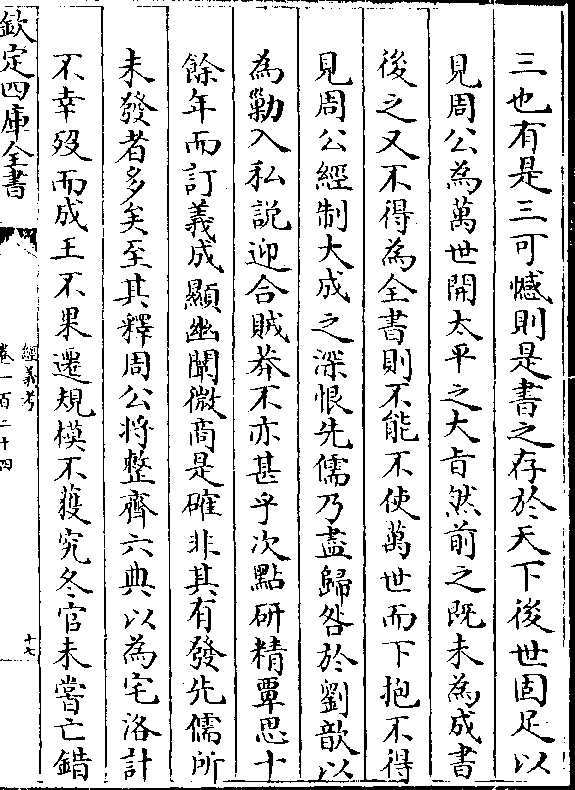 三也有是三可憾則是書之存於天下後世固足以
見周公為萬世開太平之大旨然前之既未為成書
後之又不得為全書則不能不使萬世而下抱不得
見周公經制大成之深恨先儒乃盡歸咎於劉歆以
為勦入私説迎合賊莽不亦甚乎次點研精覃思十
餘年而訂義成顯幽闡微商是確非其有發先儒所
未發者多矣至其釋周公將整齊六典以為宅洛計
不幸歿而成王不果遷規模不獲究冬官未嘗亡錯
欽定四庫全書
經義考
卷一百二十四
十七